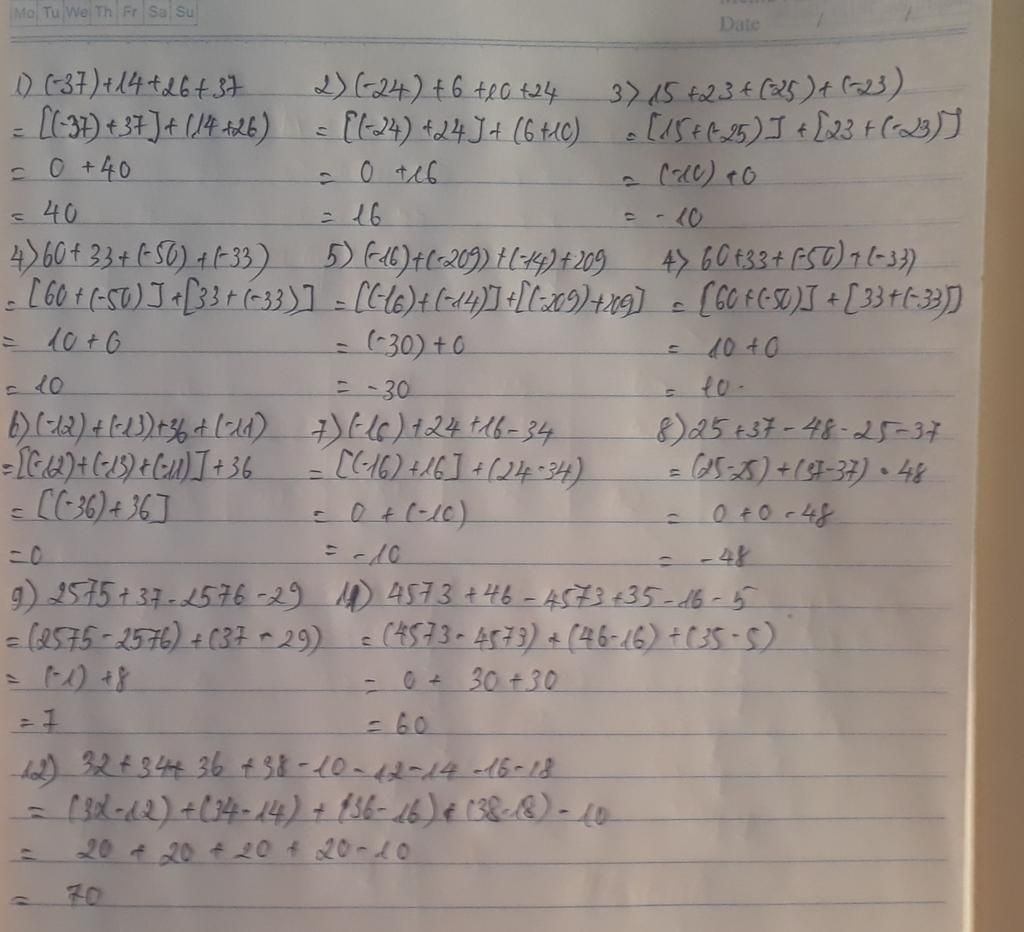 Mo Tu We Th Fr Sa Su
Date / /
1) (-37)+14+26+37
= [(-37)+37]+(14+26)
= 0 +40
= 40
2) (-24) +6 +10 +24
= [(-24) +24] + (6+10)
= 0 +16
= 16
3) 15 +23 +(-25) + (-23)
= [15+(-25)] + [23 + (-23)]
= (-10) +0
= -10
4) 60 + 33 +(-50) +(-33)
= [60 +(-50)] +[33 +(-33)]
= 10 +0
= 10
5) (-16)+(-209)+(-14)+209
= [(-16)+(-14)]+[(-209)+209]
= (-30)+0
= -30
4) 60+33+(-50)+(-33)
= [60+(-50)] + [33+(-33)]
= 10 +0
= 10.
6) (-12)+(-13)+36+(-11)
= [(-12)+(-13)+(-11)] + 36
= [(-36)+36]
= 0
7) (-16) +24 +16 - 34
= [(-16)+16] +(24-34)
= 0 + (-10)
= -10
8) 25 +37 - 48 - 25 - 37
= (25-25) + (37-37) - 48
= 0 +0 - 48
= -48
9) 2575+37-2576-29
= (2575-2576)+(37-29)
= (-1) +8
= 7
11) 4573 +46 - 4573+35 -16 - 5
= (4573-4573) + (46-16) +(35-5)
= 0 + 30 +30
= 60
12) 32 +34+ 36 +38 -10 -12 -14 -16 -18
= (32-12) +(34-14) + (36-16)+ (38-18) - 10
= 20 + 20 + 20 + 20 -10
= 70